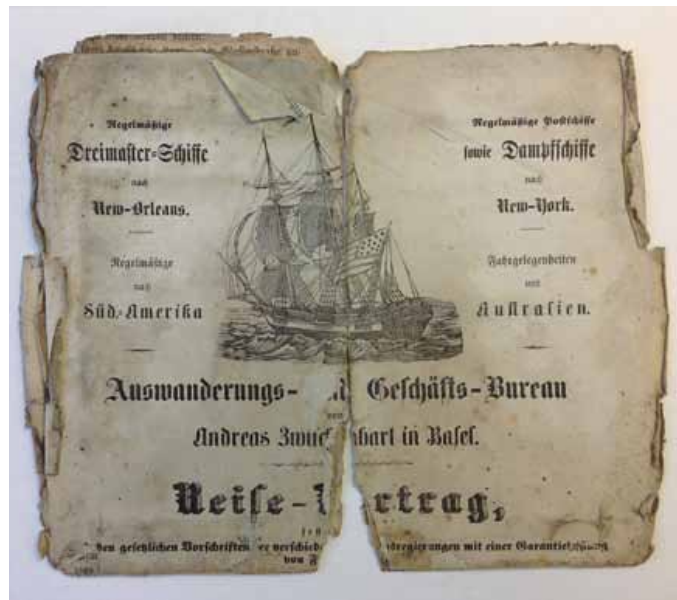 Regelmäßige
Dreimaster=Schiffe
nach
New-Orleans.
Regelmäßige
nach
Süd-Amerika
Regelmäßige Postschiffe
sowie Dampfschiffe
nach
New-York.
Fahrgelegenheiten
nach
Australien.
Auswanderungs- Geschäfts-Bureau
von
Andreas Zwi hart in Basel.
Reise-V rtrag,
den gesetzlichen Vorschriften er verschied dregierungen mit einer Garantie
von F